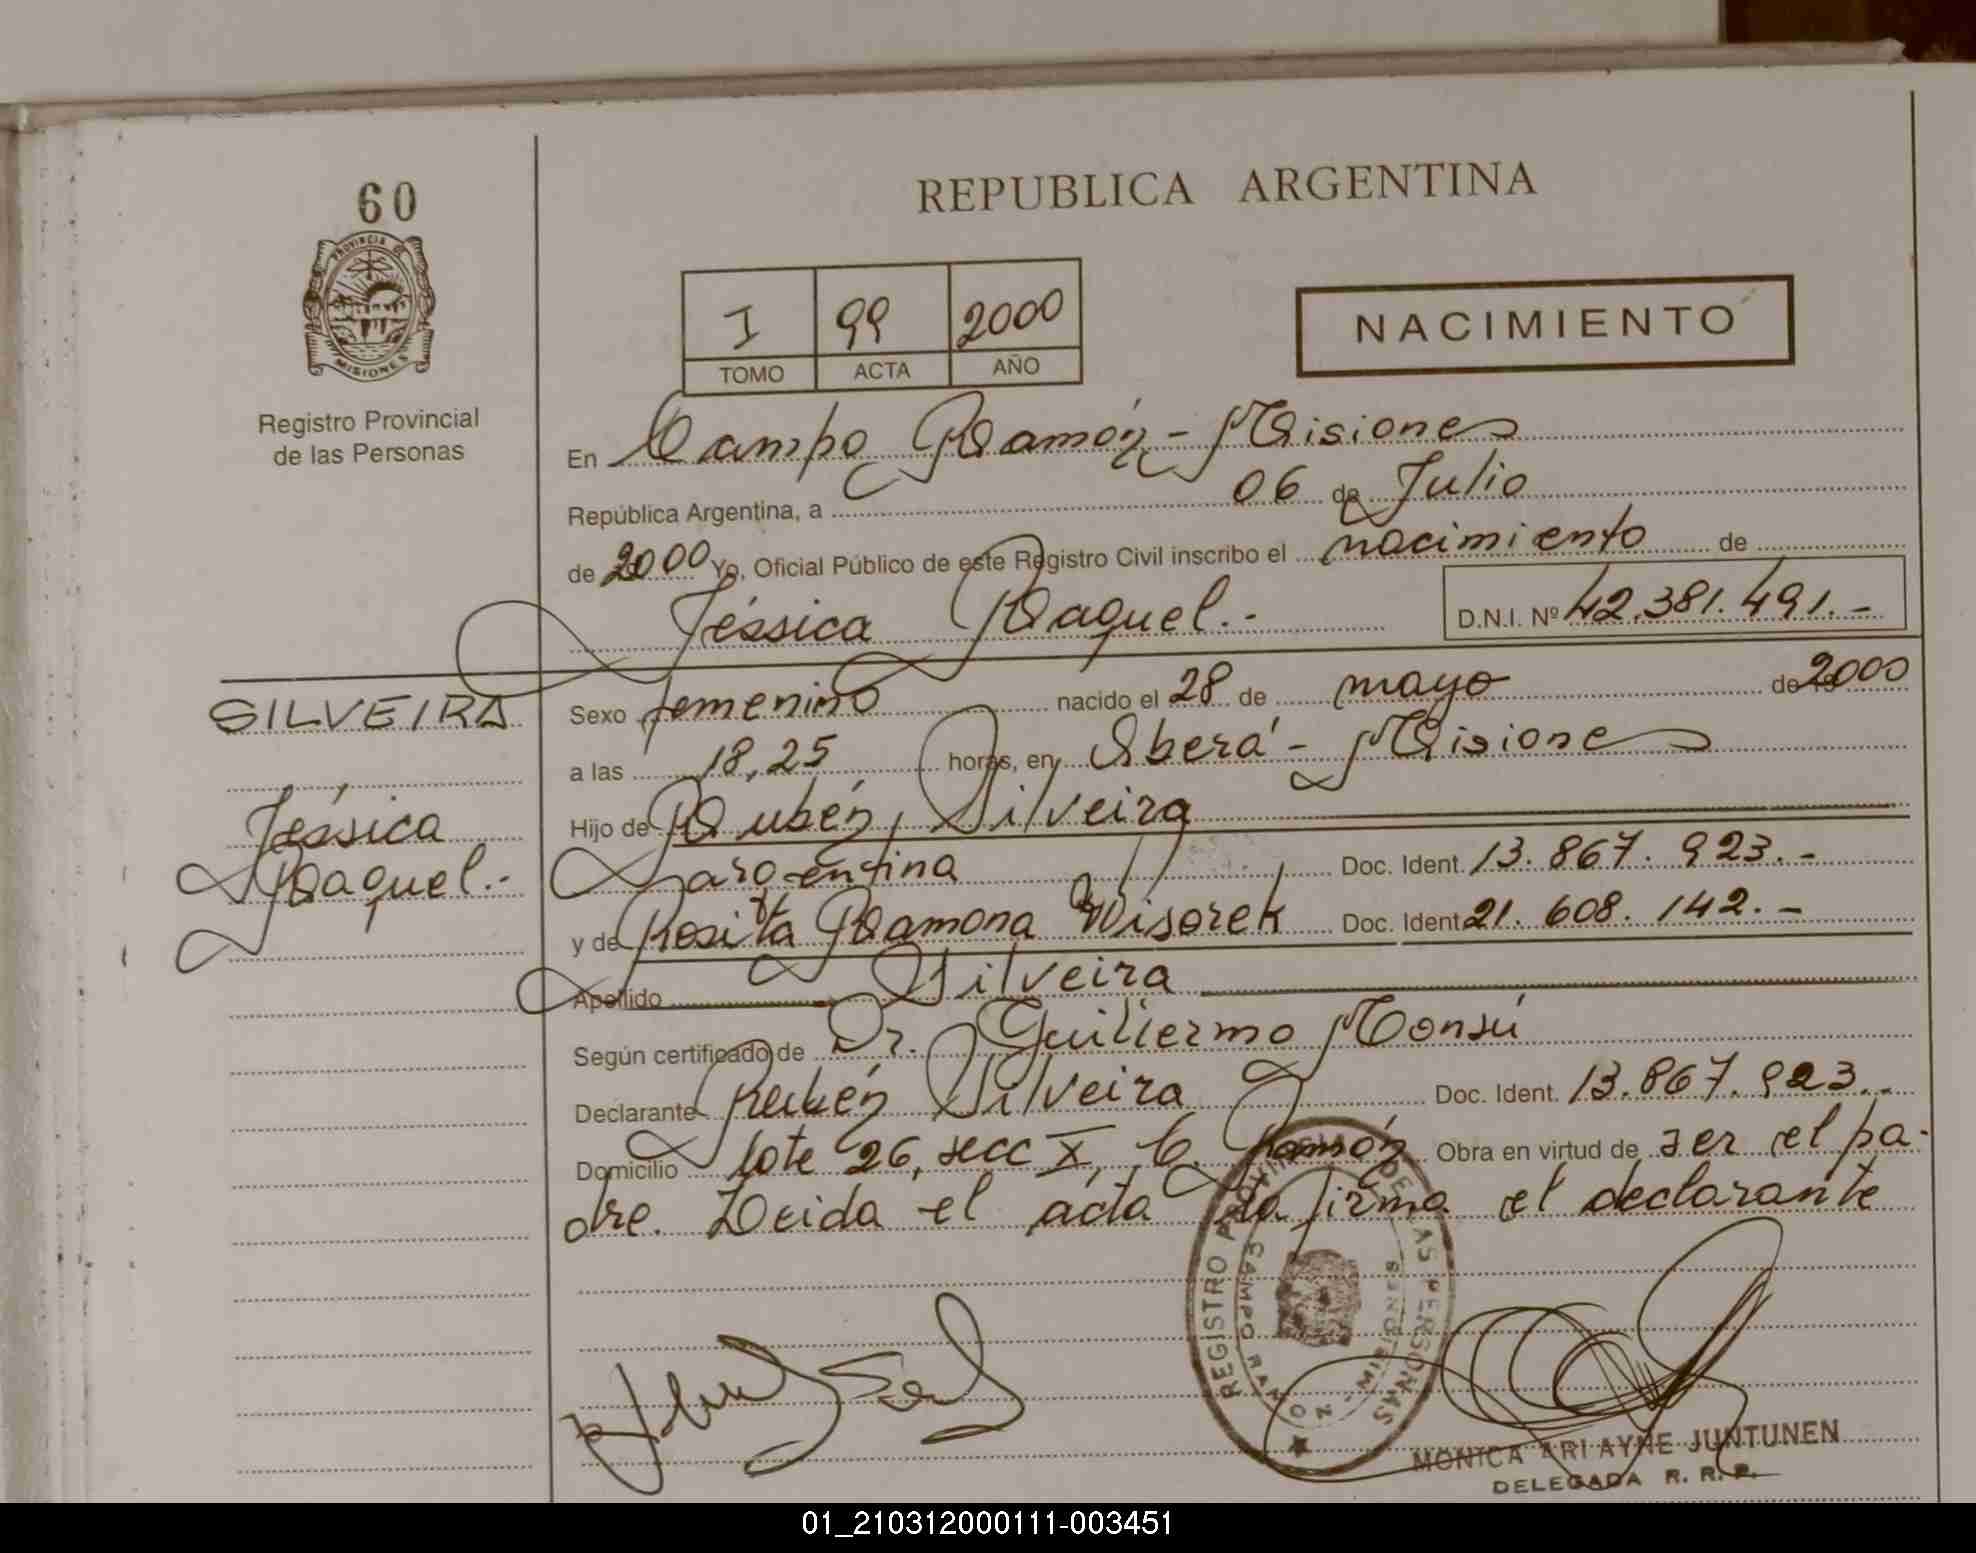 60
PROVINCIA DE
MISIONES
Registro Provincial
de las Personas
REPUBLICA ARGENTINA
I 99 2000
TOMO ACTA AÑO
NACIMIENTO
En Campo Ramón - Misiones
República Argentina, a 06 de Julio
de 2000 Yo, Oficial Público de este Registro Civil inscribo el nacimiento de
Jéssica Raquel.-
D.N.I. Nº 42.381.491.-
SILVEIRA
Jéssica
Raquel.-
Sexo femenino nacido el 28 de mayo de 2000
a las 18,25 horas, en Oberá - Misiones
Hijo de Rubén Silveira
argentina Doc. Ident. 13.867.923.-
y de Rosita Ramona Wisorek Doc. Ident 21.608.142.-
Apellido Silveira
Según certificado de Dr. Guillermo Monsú
Declarante Rubén Silveira Doc. Ident. 13.867.923.-
Domicilio lote 26, secc X, C. Ramón Obra en virtud de ser el pa-
dre. Leida el acta la firma el declarante
REGISTRO PROVINCIAL DE LAS PERSONAS
CAMPO RAMON - MISIONES
MONICA ARI AYNE JUNTUNEN
DELEGADA R. R. P.
01_210312000111-003451